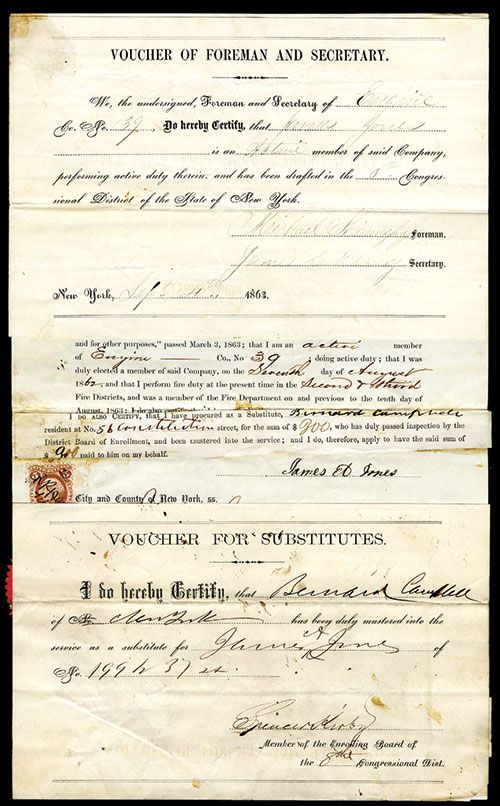 VOUCHER OF FOREMAN AND SECRETARY.
We, the undersigned, Foreman and Secretary of Engine
Co. No. 39, Do hereby Certify, that James Jones
is an Active member of said Company,
performing active duty therein, and has been drafted in the 8 Congres-
sional District of the State of New York.
Michael Foreman.
James Secretary.
New York, Sept 1863.
and for other purposes," passed March 3, 1863; that I am an active member
of Engine Co., No 39, doing active duty; that I was
duly elected a member of said Company, on the Seventh day of August
1862, and that I perform fire duty at the present time in the Second & Third
Fire Districts, and was a member of the Fire Department on and previous to the tenth day of
August, 1863; I do also
I DO ALSO CERTIFY, that I have procured as a Substitute, Bernard Campbell
resident at No. 56 Constitution street, for the sum of $900. who has duly passed inspection by the
District Board of Enrollment, and been mustered into the service; and I do, therefore, apply to have the said sum of
$900 paid to him on my behalf.
James A Jones
City and County of New York, ss.
VOUCHER FOR SUBSTITUTES.
I do hereby Certify, that Bernard Campbell
of New York has been duly mustered into the
service as a substitute for James A Jones of
No. 199 W 37 st.
Spencer Kirby
Member of the Enrolling Board of
the 8th Congressional Dist.